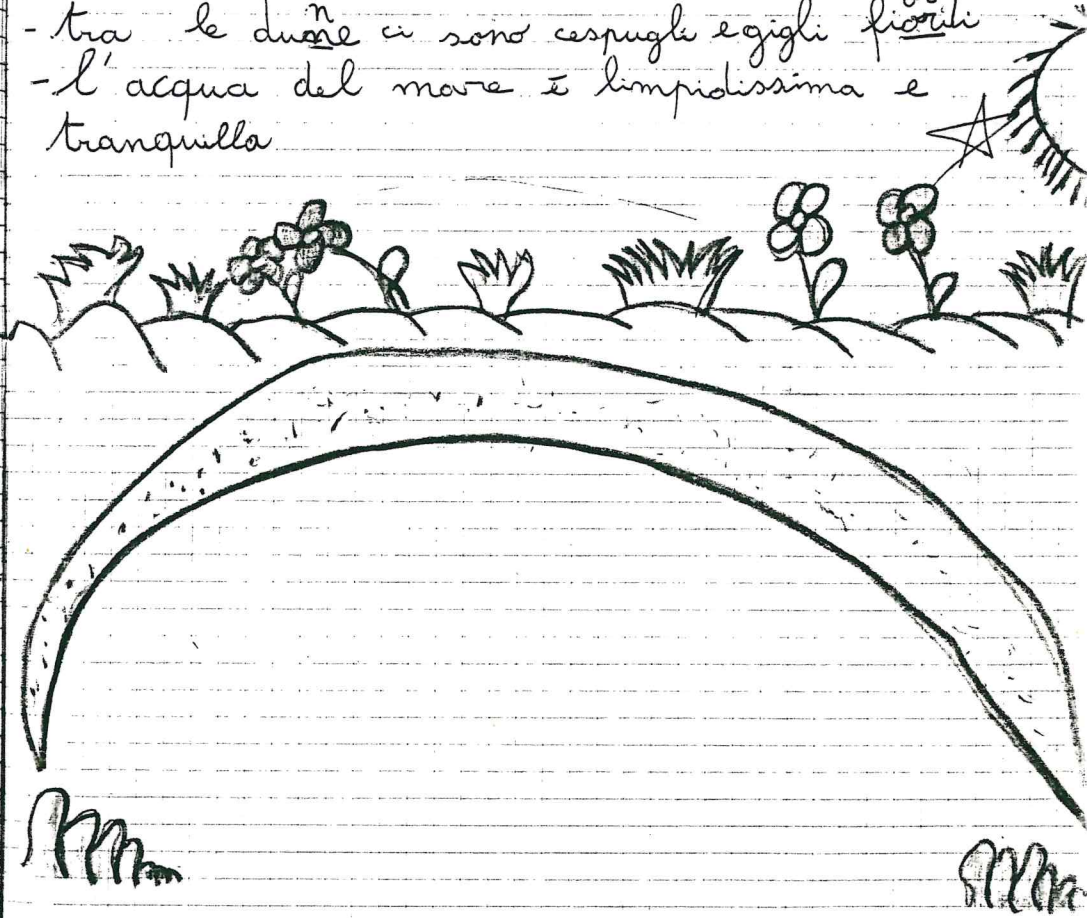 - tra le dune ci sono cespugli e gigli fioriti
- l'acqua del mare è limpidissima e
tranquilla